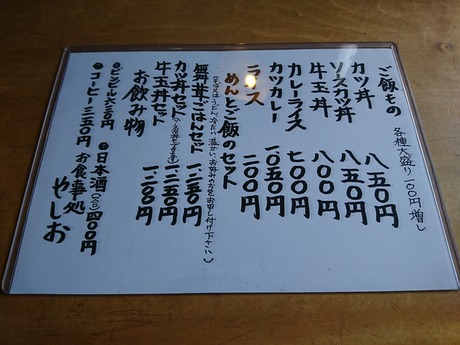 ご飯もの 各種大盛り一〇〇円増し
カツ丼 八五〇円
ソースカツ丼 八五〇円
牛玉丼 八〇〇円
カレーライス 七〇〇円
カツカレー 一〇五〇円
ライス 二〇〇円
めんとご飯のセット
(そば又はうどん、冷たい、温かい、お好みの方をお申し付け下さい)
舞茸ごはんセット 一、二五〇円
カツ丼セット 一、三五〇円
牛玉丼セット 一、三〇〇円
お飲み物
ビンビール 六三〇円
日本酒 四〇〇円
コーヒー 三五〇円
お食事処 やしお